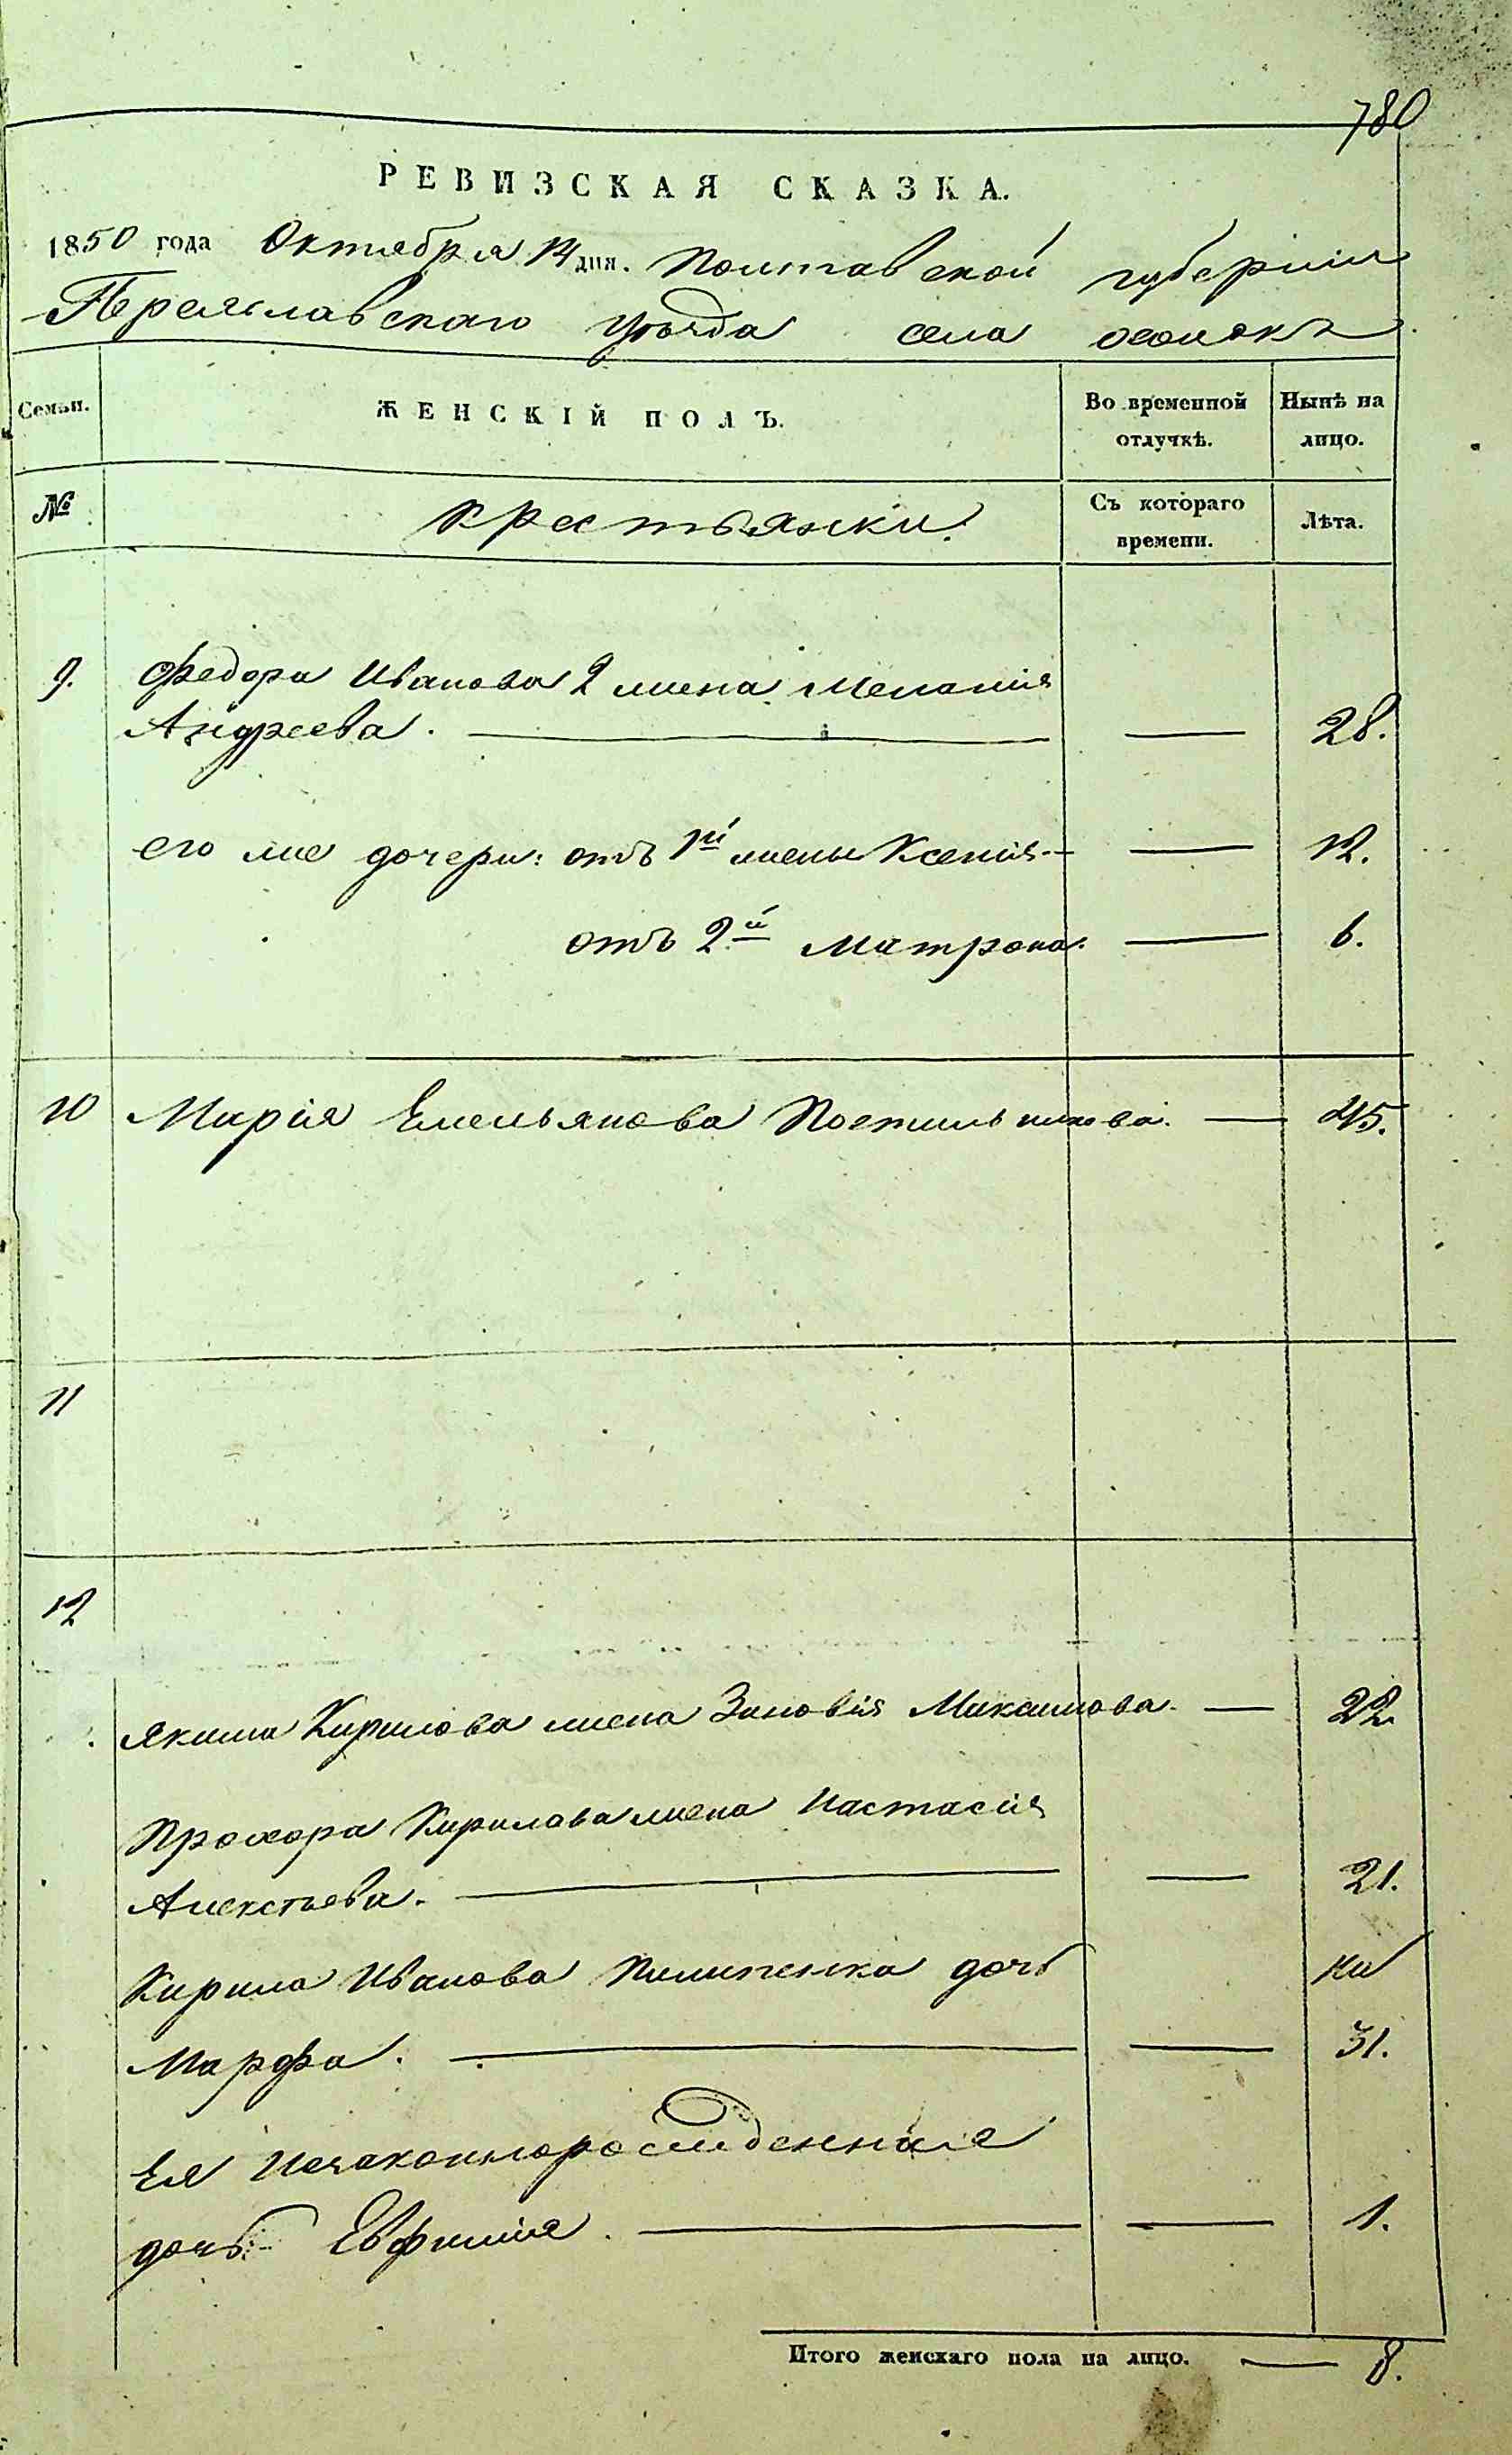 780
РЕВИЗСКАЯ СКАЗКА.
1850 года Октября 14 дня. Полтавской губернии
Переяславскаго уѣзда села
Семьи.
ЖЕНСКІЙ ПОЛЪ.
Во временной отлучкѣ.
Нынѣ на лицо.
№
Крестьянки.
Съ котораго времени.
Лѣта.
9. Федора Иванова 2 жена Меланія
Андреева. — — 28.
его же дочери: отъ 1й жены Ксенія — — 12.
отъ 2й Матрона. — 6.
10 Марія Емельянова Постильникова. — 45.
11
12
Якима Кирилова жена Зиновія Максимова. — 22.
Прохора Кирилова жена Настасія
Алексѣева. — — 21.
Кирила Иванова Пилипенка дочь
Марфа. — — 31.
Ея Незаконнорожденная
дочь Евфимія. — — 1.
Итого женскаго пола на лицо. — 8.